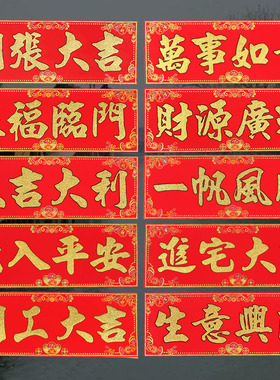 張大吉
萬事如
福臨門
財源廣
吉大利
一帆風
入平安
進宅大
工大吉
生意興